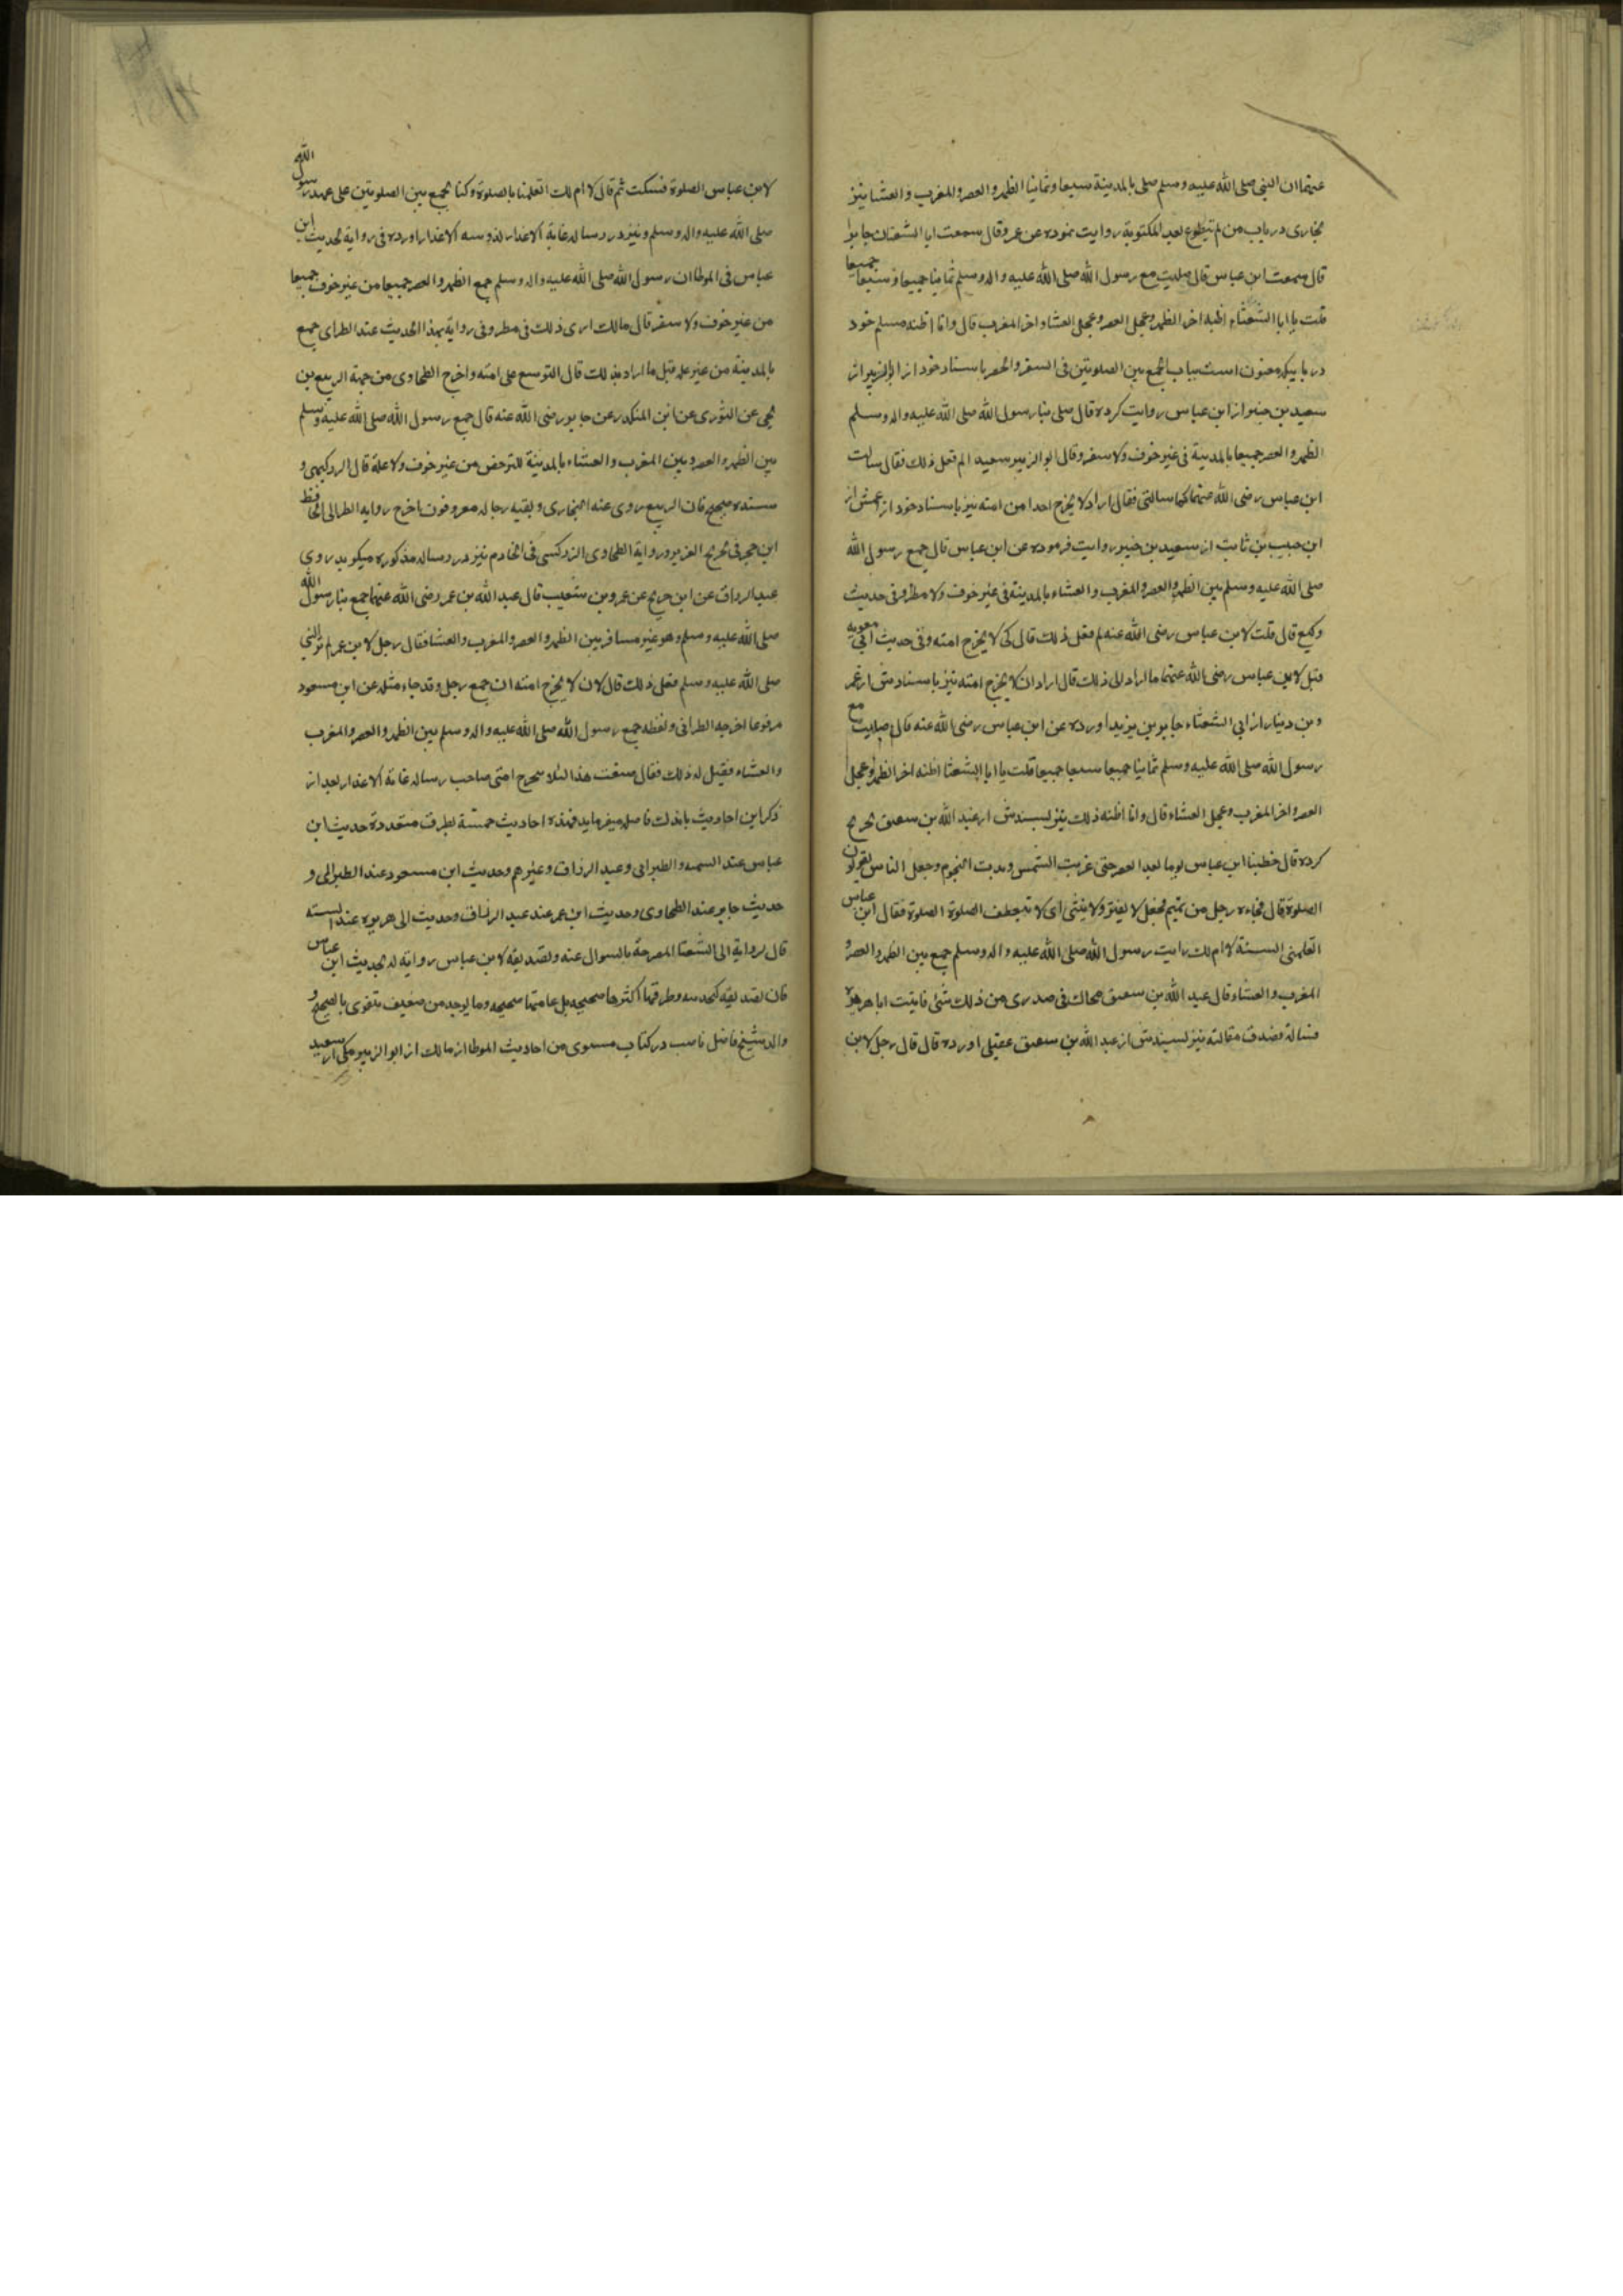 عنهما ان النبی صلی الله علیه وسلم صلی بالمدینة سبعا وثمانیا الظهر والعصر والمغرب والعشا نیز
بخاری در باب من لم یتطوع بعد المکتوبة روایت نموده عن عمرو قال سمعت ابا الشعثاء جابرا
قال سمعت ابن عباس قال صلیت مع رسول الله صلی الله علیه واله وسلم ثمانیا جمیعا وسبعا جمیعا
قلت یا ابا الشعثاء اظنه اخر الظهر وعجل العصر وعجل العشا واخر المغرب قال وانا اظنه مسلم خود
در بابیکه معنون است بباب الجمع بین الصلوتین فی السفر والحضر باسناد خود از ابو الزبیر از
سعید بن جبیر از ابن عباس روایت کرده قال صلی بنا رسول الله صلی الله علیه واله وسلم
الظهر والعصر جمیعا بالمدینة فی غیر خوف ولا سفر وقال ابو الزبیر سعید الم فعل ذلک فقال سالت
ابن عباس رضی الله عنهما کما سالتنی فقال اراد لا یحرج احدا من امته نیز باسناد خود از عمش از
ابن حبیب بن ثابت از سعید بن جبیر روایت فرموده عن ابن عباس قال جمع رسول الله
صلی الله علیه وسلم بین الظهر والعصر والمغرب والعشاء بالمدینة فی غیر خوف ولا مطر وفی حدیث
وکیع قال قلت لابن عباس رضی الله عنه لم فعل ذلک قال کی لا یحرج امته وفی حدیث ابی معویه
قیل لابن عباس رضی الله عنهما ما اراد الی ذلک قال اراد ان لا یحرج امته نیز باسنادش از عمر
و بن دینار از ابی الشعثاء جابر بن یزید اورده عن ابن عباس رضی الله عنه قال صلیت مع
رسول الله صلی الله علیه وسلم ثمانیا جمیعا سبعا جمیعا قلت یا ابا الشعثا اظنه اخر الظهر وعجل
العصر واخر المغرب وعجل العشاء قال وانا اظنه ذلک نیز بسندش از عبد الله بن سعیق تخریج
کرده قال خطبنا ابن عباس یوما بعد العصر حتی غربت الشمس وبدت النجوم وجعل الناس یقولون
الصلوة قال فجاءه رجل من تمیم فجعل لا یفتر ولا ینثنی ای لا ینعطف الصلوة الصلوة فقال ابن عباس
اتعلمنی السنة لا ام لک رایت رسول الله صلی الله علیه واله وسلم جمع بین الظهر والعصر و
المغرب والعشاء قال عبد الله بن سعیق فحاک فی صدری من ذلک شئ فاتیت ابا هریره
فسالته فصدق مقالته نیز بسندش از عبد الله بن سعیق عقیلی اورده قال قال رجل لابن
لابن عباس الصلوة فسکت ثم قال لا ام لک اتعلمنا بالصلوة وکنا نجمع بین الصلوتین علی عهد رسول الله
صلی الله علیه واله وسلم ونیز در رساله غایة الاعذار اورده فی روایة لحدیث ابن
عباس فی الموطا ان رسول الله صلی الله علیه واله وسلم جمع الظهر والعصر جمیعا من غیر خوف جمیعا
من غیر خوف ولا سفر قال مالک اری ذلک فی مطر وفی روایة بهذا الحدیث عند الطبرانی جمع
بالمدینة من غیر علة قیل ما اراد بذلک قال التوسع علی امته واخرج الطحاوی من جهة الربیع بن
یحیی عن الثوری عن ابن المنکدر عن جابر رضی الله عنه قال جمع رسول الله صلی الله علیه وسلم
بین الظهر والعصر وبین المغرب والعشاء بالمدینة للترخص من غیر خوف ولا علة قال الزرکشی و
سنده صحیح فان الربیع روی عنه البخاری وبقیه رجاله معروفون اخرج روایه الطبرانی الحافظ
ابن حجر فی تخریج العزیز وروایة الطحاوی الزرکشی فی الخادم نیز در رساله مذکوره میکوید روی
عبد الرزاق عن ابن جریج عن عمرو بن شعیب قال عبد الله بن عمر رضی الله عنهما جمع بنا رسول الله
صلی الله علیه وسلم وهو غیر مسافر بین الظهر والعصر والمغرب والعشا فقال رجل لابن عمر لم تری النبی
صلی الله علیه وسلم فعل ذلک قال لان لا یحرج امته ان جمع رجل وقد جاء مثله عن ابن مسعود
مرفوعا اخرجه الطبرانی ولفظه جمع رسول الله صلی الله علیه واله وسلم بین الظهر والعصر والمغرب
والعشاء فقیل له ذلک فقال صنعت هذا لئلا تحرج امتی صاحب رساله غایة الاعذار بعد از
ذکر این احادیث بلافاصله میفرماید فهذه احادیث خمسة بطرق متعددة حدیث ابن
عباس عند الستة والطبرانی وعبد الرزاق وغیرهم وحدیث ابن مسعود عند الطبرانی و
حدیث جابر عند الطحاوی وحدیث ابن عمر عند عبد الرزاق وحدیث ابی هریره عند الستة
قال لروایة ابی الشعثا المصرحة بالسوال عنه وتصدیقه لابن عباس روایة له لحدیث ابن عباس
فان تصدیقه کحدیثه وطرقها اکثرها صحیحه بل عامتها صحیحه وما یوجد من ضعیف یتقوی بالصحیح و
والد شیخ فاضل ناصب در کتاب مسوی من احادیث الموطا از مالک از ابو الزبیر مکی از سعید